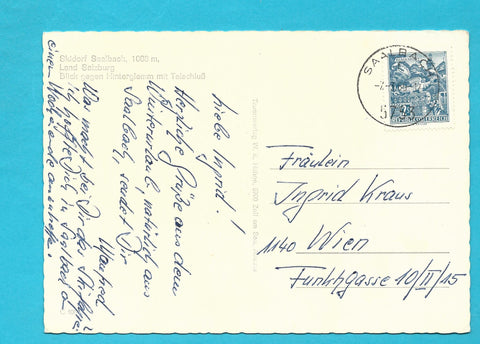 Skidorf Saalbach, 1003 m,
Land Salzburg
Blick gegen Hinterglemm mit Talschluß
Liebe Ingrid!
Herzliche Grüße aus dem
Winterurlaub, natürlich aus
Saalbach, sendet Dir
Manfred
Was macht bei Dir das
Ich hoffe Dich in Saalbach
einem Wochenende anzutreffen.
SAALBACH
Fräulein
Ingrid Kraus
1140 Wien
Funkhgasse 10/II/15